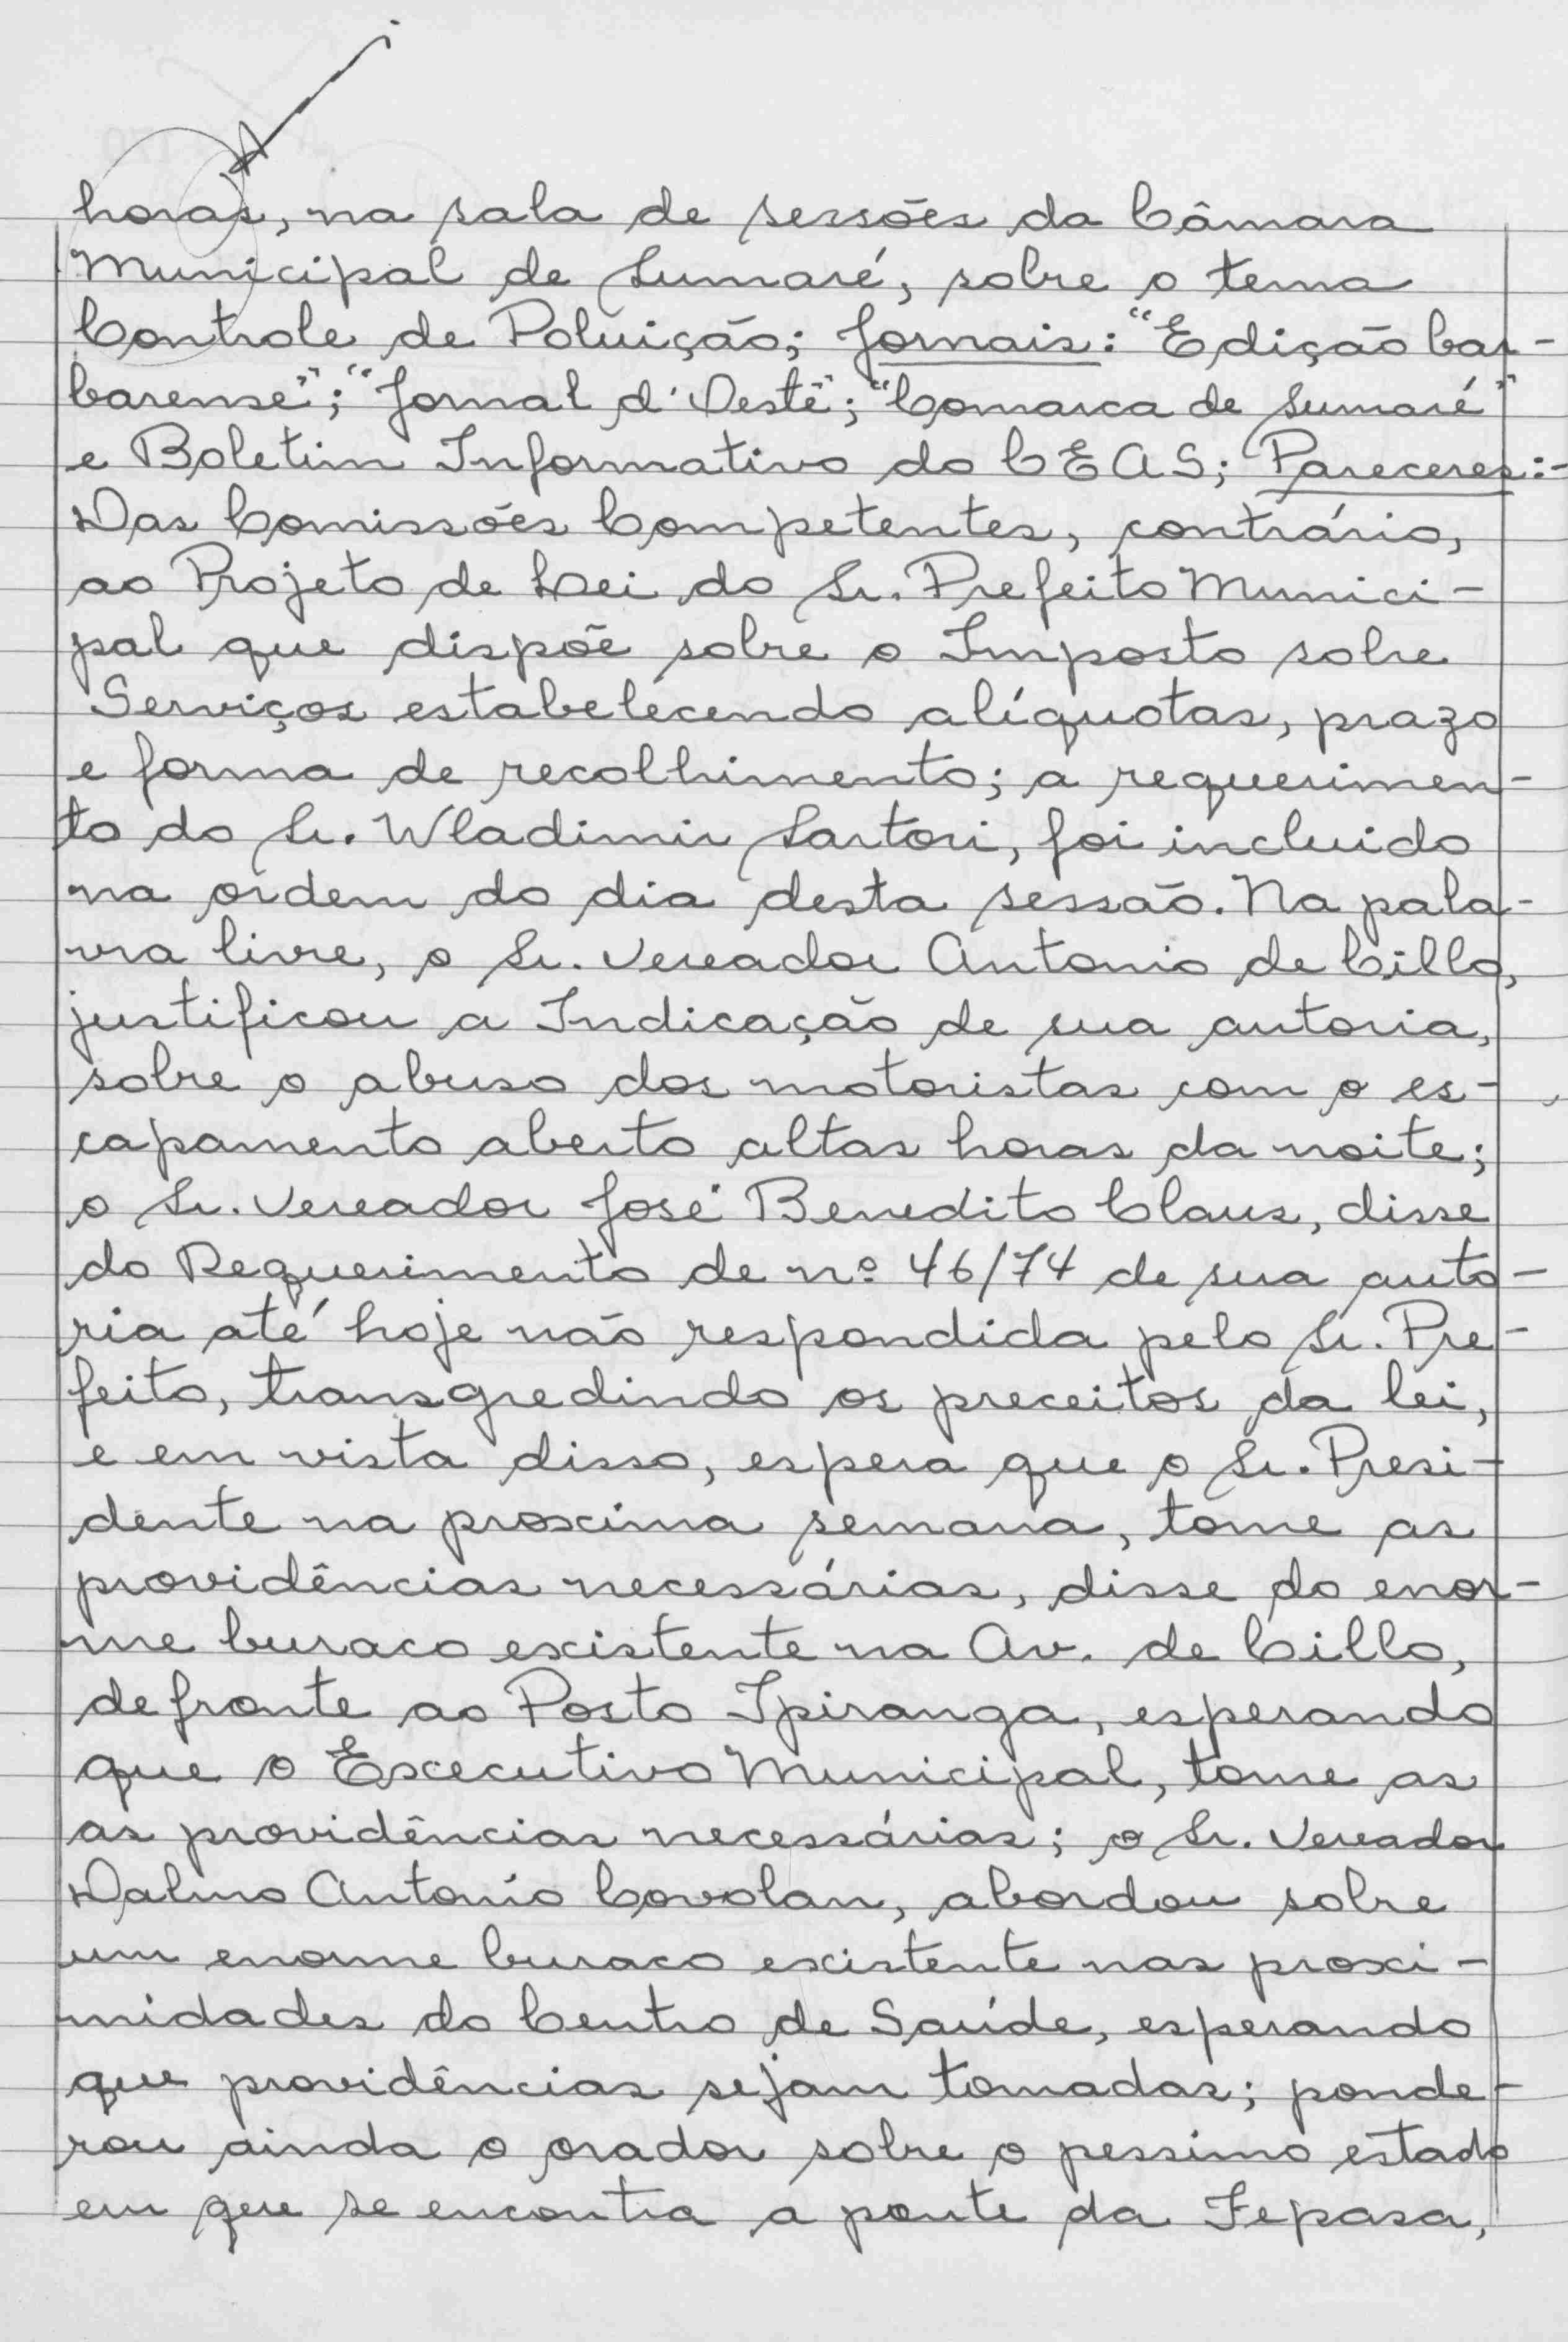 horas, na sala de sessões da Câmara
Municipal de Sumaré, sobre o tema
Controle de Poluição; Jornais: "Edição bar-
barense"; "Jornal d'Oeste"; "Comarca de Sumaré"
e Boletim Informativo do CEAS; Pareceres:-
Das Comissões Competentes, contrário,
ao Projeto de Lei do Sr. Prefeito Munici-
pal que dispõe sobre o Imposto sobre
Serviços estabelecendo alíquotas, prazo
e forma de recolhimento; a requerimen-
to do Sr. Wladimir Sartori, foi incluido
na ordem do dia desta sessão. Na pala-
vra livre, o Sr. Vereador Antonio de Cillo,
justificou a Indicação de sua autoria,
sobre o abuso dos motoristas com o es-
capamento aberto altas horas da noite;
o Sr. Vereador José Benedito Claus, disse
do Requerimento de nº 46/74 de sua auto-
ria até hoje não respondida pelo Sr. Pre-
feito, transgredindo os preceitos da lei,
e em vista disso, espera que o Sr. Presi-
dente na proxima semana, tome as
providências necessárias, disse do enor-
me buraco existente na Av. de Cillo,
defronte ao Posto Ipiranga, esperando
que o Executivo Municipal, tome as
as providências necessárias; o Sr. Vereador
Dalmo Antonio Covolan, abordou sobre
um enorme buraco existente nas proxi-
midades do Centro de Saúde, esperando
que providências sejam tomadas; ponde-
rou ainda o orador sobre o pessimo estado
em que se encontra a ponte da Fepasa,